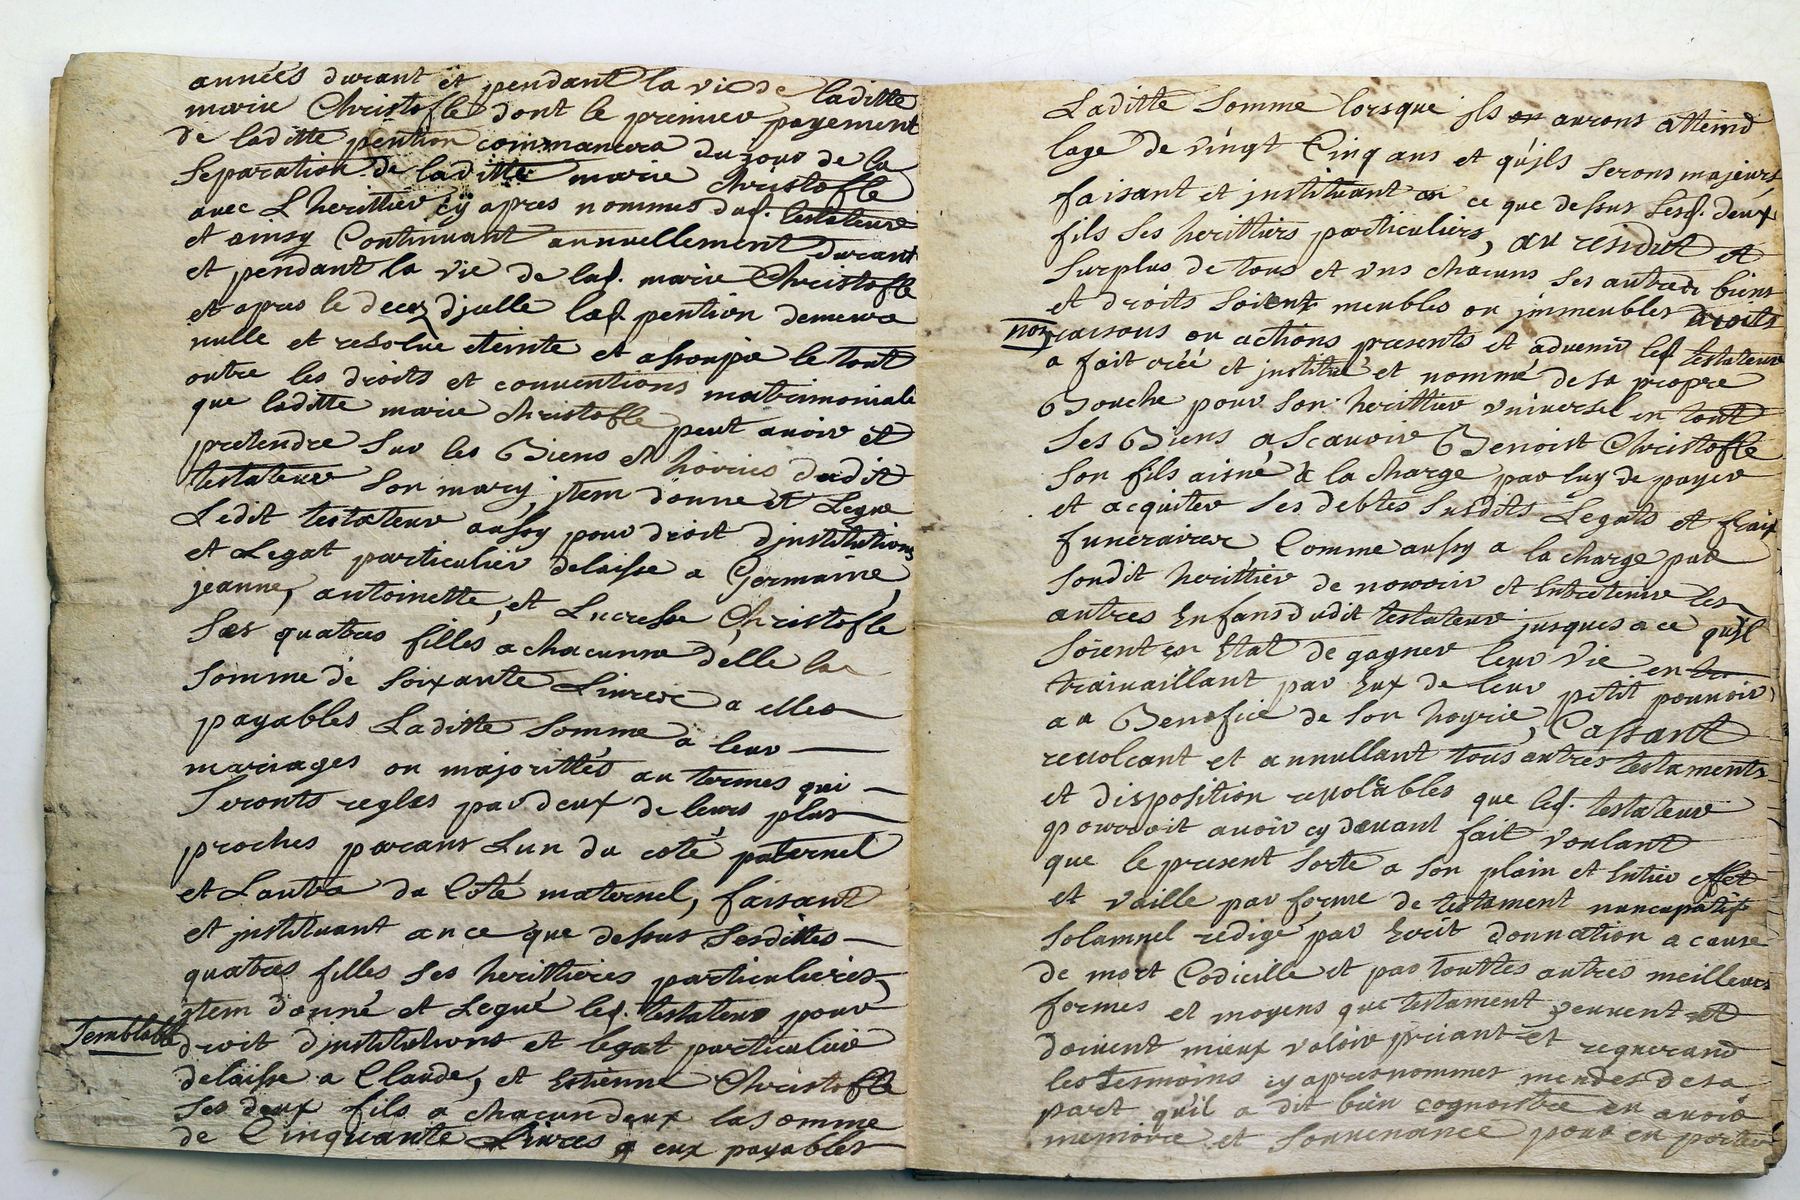 années durant et pendant la vie de laditte
marie Christofle dont le premier payement
de laditte pention commancera du jour de la
Separation de laditte marie Christofle
avec L herittier cy apres nommés dud. testateur
et ainsy Continuant annuellement durant
et pendant la vie de lad. marie Christofle
et apres le decez d'jcelle lad pention demeura
nulle et resolue eteinte et assoupie le tout
outre les droits et conventions matrimoniale
que laditte marie Christofle peut avoir et
pretendre Sur les Biens et hoiries dudit
testateur Son mary, jtem donne et Legue
Ledit testateur aussy pour droit d'jnstitutions
et Legat particulier delaisse a Germaine,
jeanne, antoinette, et Lucresse Christofle
Ses quatres filles a chacunne d'elle la
Somme de Soixante Livres a elles
payables Laditte Somme a leur
mariages ou majorittés au termes qui
Seronts regles par deux de leurs plus
proches parans Lun du coté paternel
et Lautre du Coté maternel, faisant
et jnstituant an ce que dessus Sesdittes
quatres filles, Ses herittieres particulieres
jtem donné et Legué led. testateur pour
Semblable droit d'jnstitutions et legat particulier
delaisse a Claude, et Estienne Christofle
Ses deux fils a chacun deux la Somme
de Cinquante Livres a eux payables
Laditte Somme lorsque jls aurons atteind
lage de vingt Cinq ans et qu'jls Serons majeurs
faisant et jnstituant an ce que dessus Sesd. deux
fils Ses herittiers particuliers, au residut et
Surplus de tous et vns chacuns Ses autres biens
et droits Soient meubles ou jmmeubles droits
noz raisons ou actions presents et advenir led testateur
a fait créé et jnstitué et nommé de Sa propre
Bouche pour Son herittier vniversel en tout
Ses Biens a Scavoir Benoist Christofle
Son fils aisné a la charge par luy de payer
et acquiter Ses debtes Susdits Legats et fraix
funeraires, Comme aussy a la charge par
Sondit herittier de nourir et Entretenir les
autres Enfans dudit testateur jusques a ce qu'jl
Soient en Etat de gagner leur vie en
traivaillant par Eux de leur petit pouvoir
au Benefice de Son hoyrie, Cassant
revolcant et annullant tous autres testaments
et disposition revolcables que led. testateur
pourroit avoir cy devant fait voulant
que le present Sorte a Son plain et Entier effet
et vaille par forme de testament nuncupatif
Solamnel redigé par Ecrit donnation a cause
de mort Codicille et par touttes autres meilleurs
formes et moyens que testament peuvent et
doivent mieux valoir priant et requerand
les tesmoins cy apres nommes mendes de sa
part qu'il a dit bien cognoistre en avoir
memoire et Souvenance pour en porter